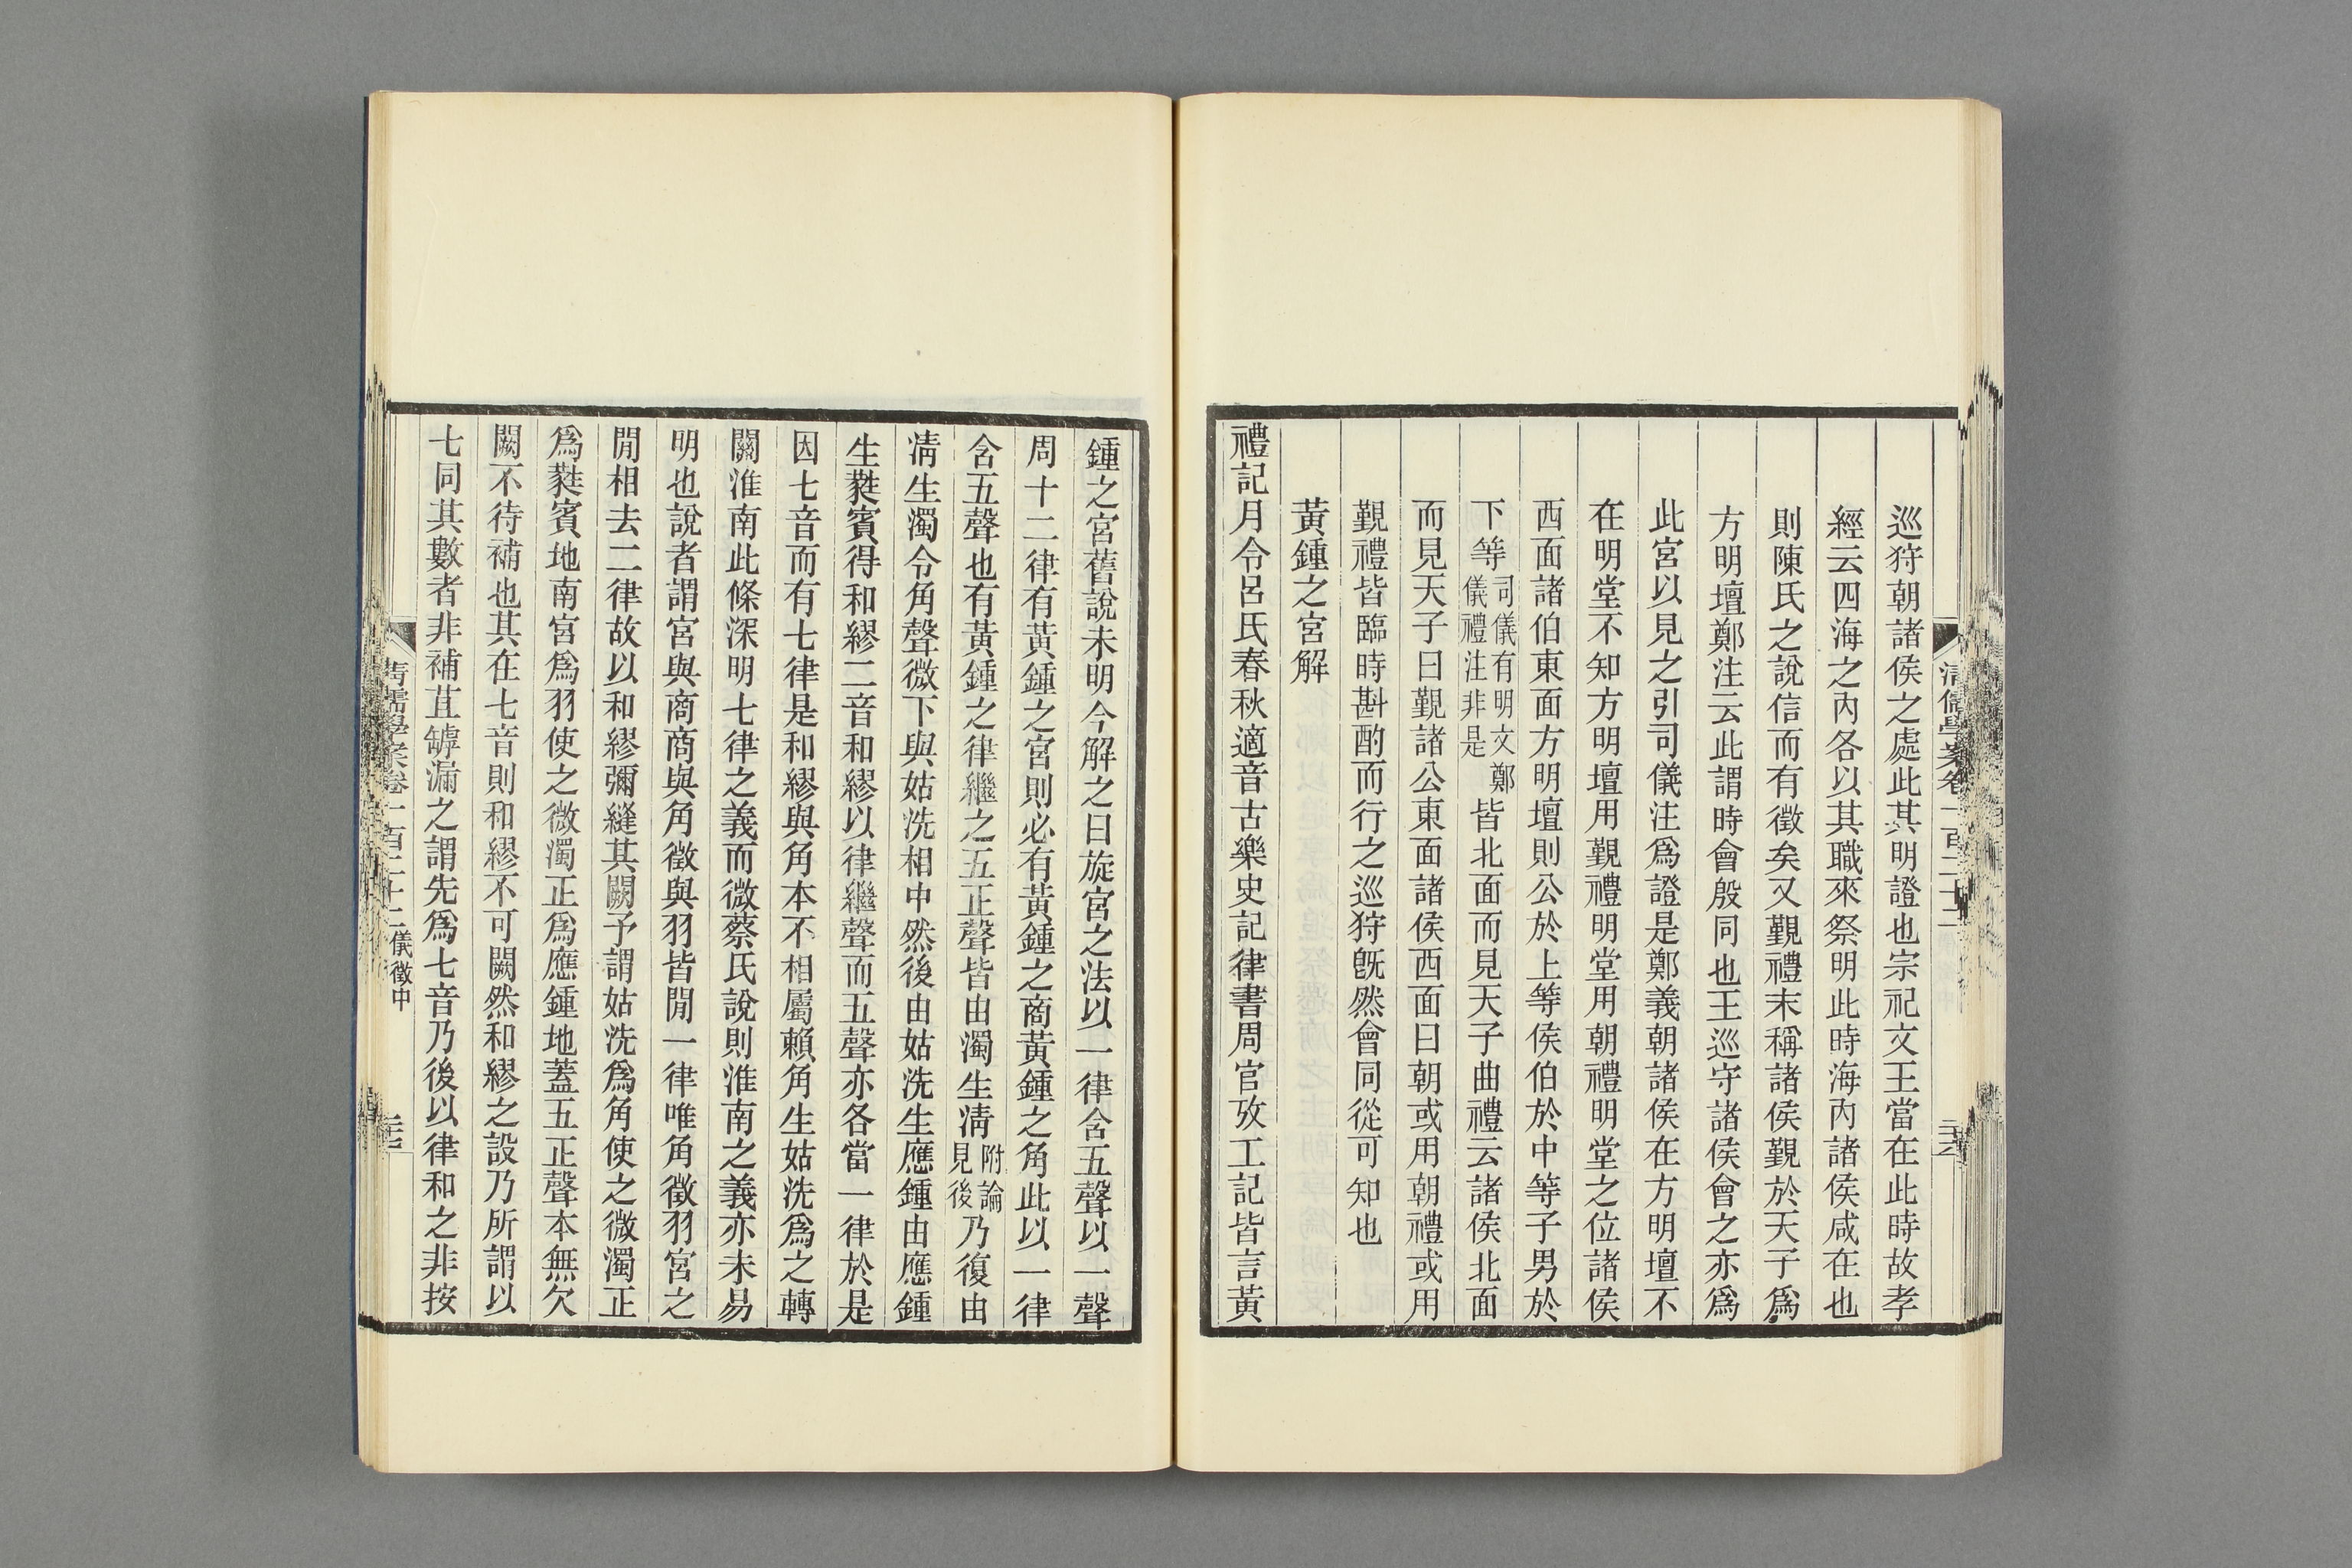 巡狩朝諸侯之處此其明證也宗祀文王當在此時故孝
經云四海之內各以其職來祭明此時海內諸侯咸在也
則陳氏之說信而有徵矣又覲禮末稱諸侯覲於天子爲
方明壇鄭注云此謂時會殷同也王巡守諸侯會之亦爲
此宮以見之引司儀注爲證是鄭義朝諸侯在方明壇不
在明堂不知方明壇用覲禮明堂用朝禮明堂之位諸侯
西面諸伯東面方明壇則公於上等侯伯於中等子男於
下等司儀有明文鄭儀禮注非是皆北面而見天子曲禮云諸侯北面
而見天子曰覲諸公東面諸侯西面曰朝或用朝禮或用
覲禮皆臨時斟酌而行之巡狩旣然會同從可知也
黃鍾之宮解
禮記月令呂氏春秋適音古樂史記律書周官攷工記皆言黃
鍾之宮舊說未明今解之曰旋宮之法以一律含五聲以一聲
周十二律有黃鍾之宮則必有黃鍾之商黃鍾之角此以一律
含五聲也有黃鍾之律繼之五正聲皆由濁生淸附論見後乃復由
淸生濁令角聲微下與姑洗相中然後由姑洗生應鍾由應鍾
生蕤賓得和繆二音和繆以律繼聲而五聲亦各當一律於是
因七音而有七律是和繆與角本不相屬賴角生姑洗爲之轉
關淮南此條深明七律之義而微蔡氏說則淮南之義亦未易
明也說者謂宮與商商與角徵與羽皆閒一律唯角徵羽宮之
閒相去二律故以和繆彌縫其闕予謂姑洗爲角使之微濁正
爲蕤賓地南宮爲羽使之微濁正爲應鍾地蓋五正聲本無欠
闕不待補也其在七音則和繆不可闕然和繆之設乃所謂以
七同其數者非補苴罅漏之謂先爲七音乃後以律和之非按
清儒學案卷一百二十二
儀徵中